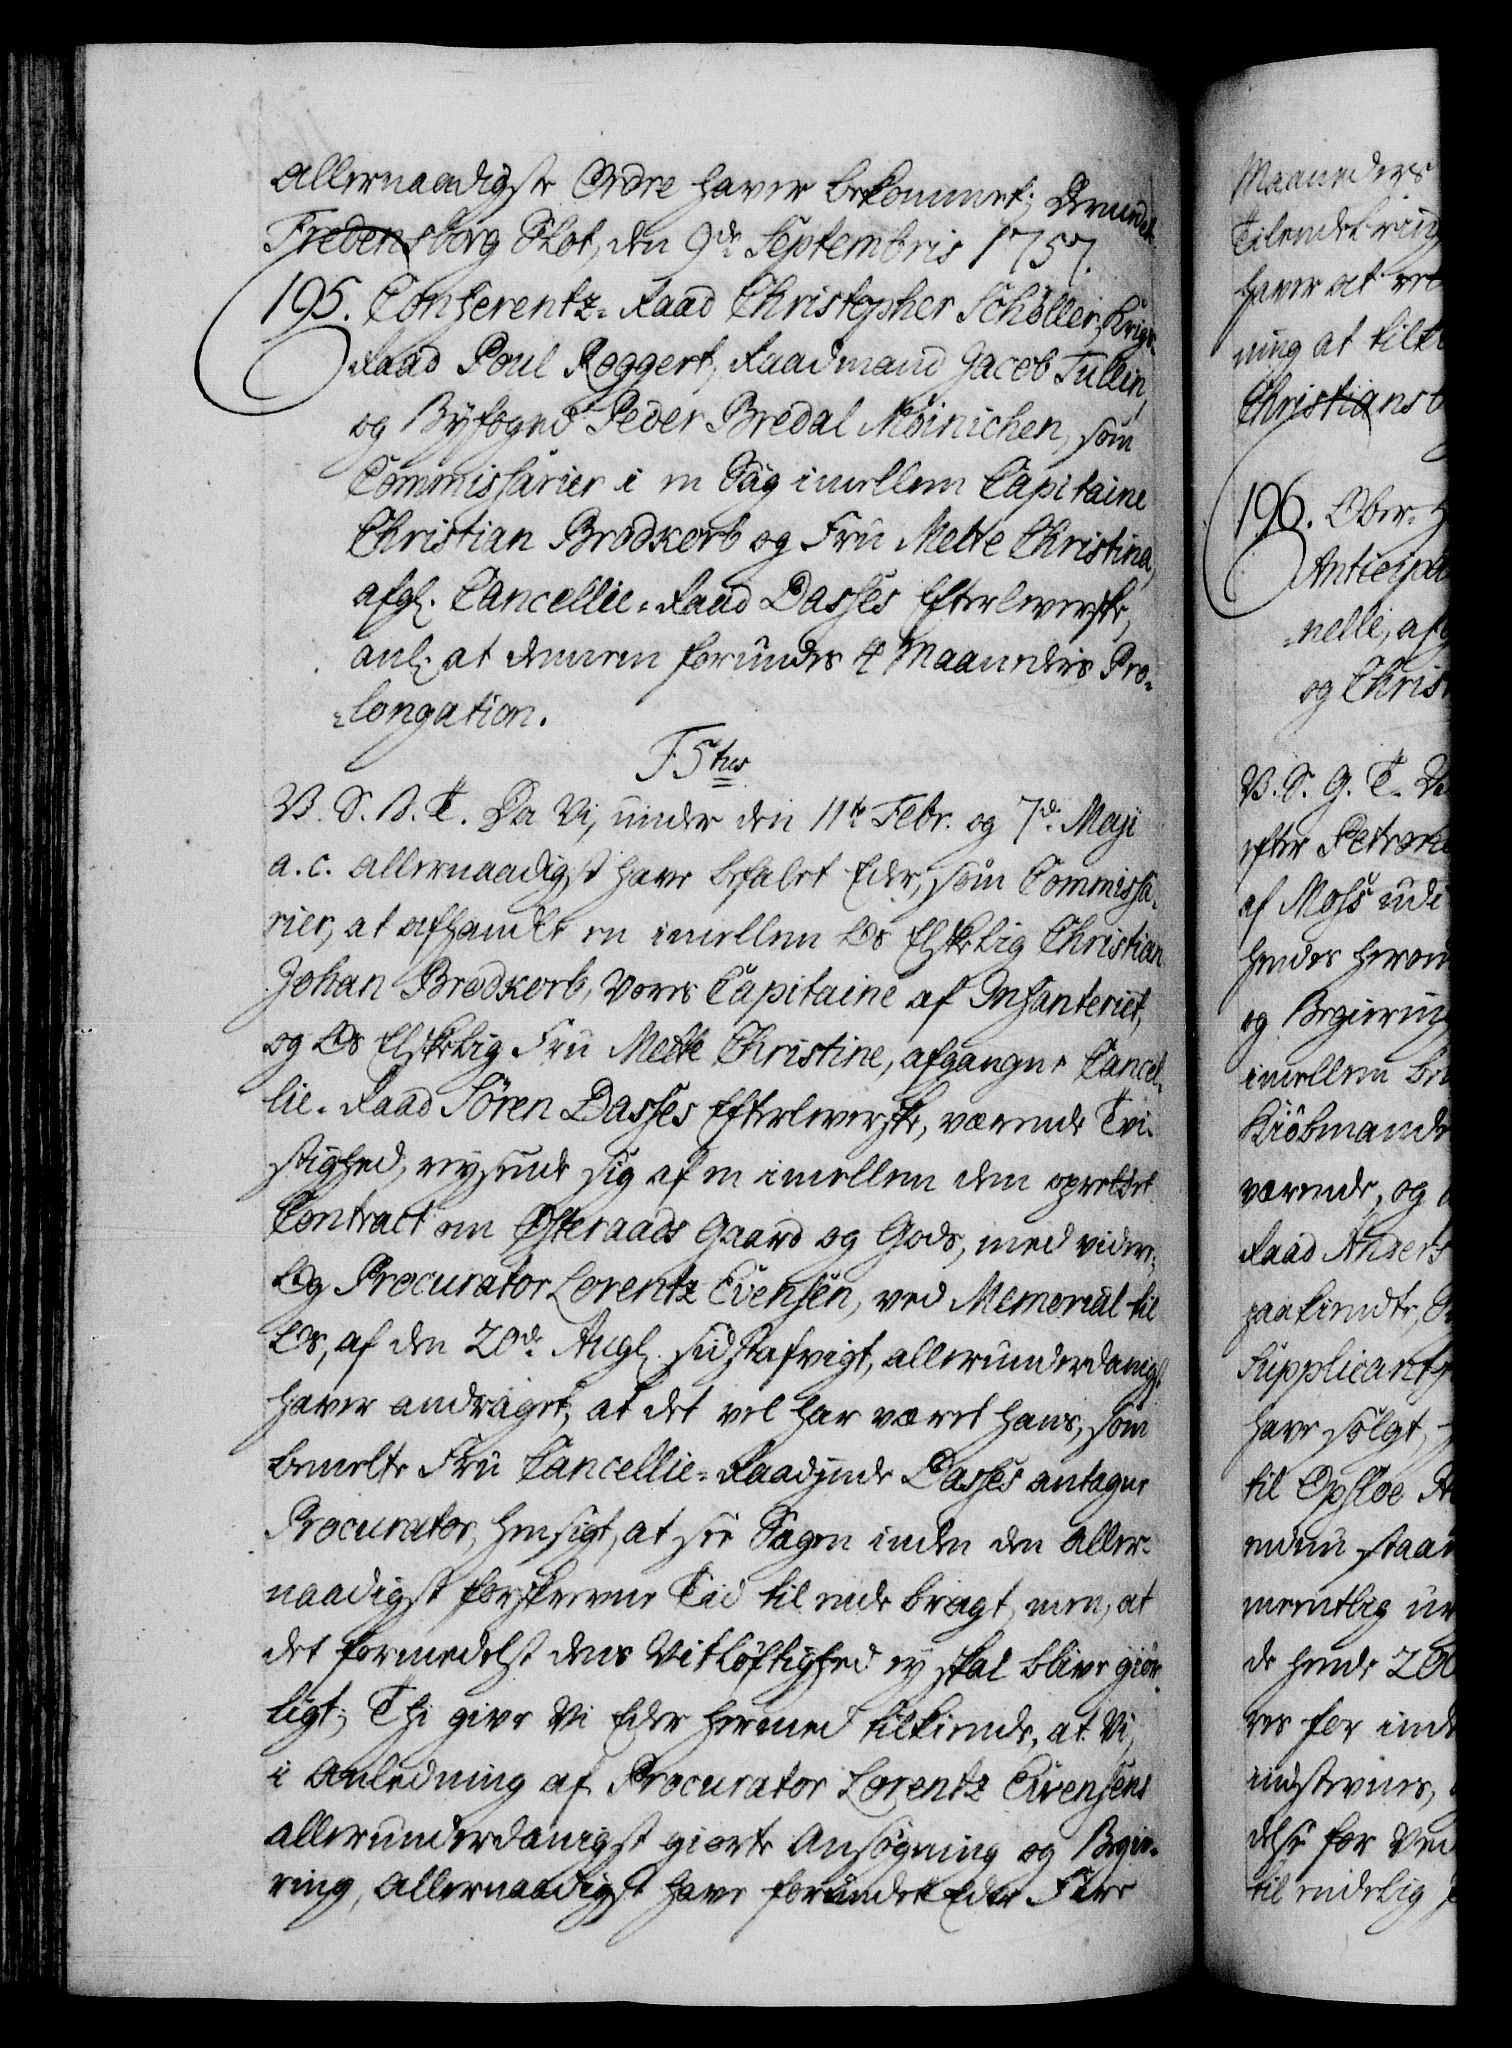 allernaadigste Ordre haver bekommet; Dermed
Fredensborg Slot, den 9de Septembris 1757.
195. Conferentz-Raad Christopher Schøller, Krigs-
Raad Poul Roggert, Raadmand Jacob Tullin,
og Byfoged Peder Bredal Möinichen, som
Commissarier i en Sag imellem Capitaine
Christian Brodkorb og Fru Mette Christina,
afg: Cancellie-Raad Dasses Efterleverske,
anl: at dennem forundes 4 Maaneders Pro-
longation.
F5tus
V. S. V. T. Da Vi, under den 11te Febr. og 7de Maji
a. c. allernaadigst have befalet Eder, som Commissa-
rier, at afhandle en imellem Os Elskelig Christian
Johan Brodkorb, Vores Capitaine af Infanteriet,
og Os Elskelig Fru Mette Christine, afgangne Cancel-
lie-Raad Sören Dasses Efterleverske, værende Tvi-
stighed, reysende sig af en imellem dem oprettet
Contract om Østeraads Gaard og Gods, med videre;
Og Procurator Lorentz Evensen, ved Memorial til
Os, af den 20de Aug: sidstafvigt, allerunderdanigst
haver andraget, at det vel har været hans, som
bemelte Fru Cancellie-Raadinde Dasses antagne
Procurator, Hensigt, at see Sagen inden den aller-
naadigst forskrevne Tid til ende bragt, men, at
det formedelst dens Vitløftighed ey skal blive giør-
ligt; Thi give Vi Eder hermed tilkiende, at Vi,
i Anledning af Procurator Lorentz Evensens
allerunderdanigst giorte Ansøgning og Begie-
ring, Allernaadigst have forundt Eder Fiire
Maaneders
196. Ober-
og
V. S. G. T.
efter
af Moss udi
hendes
og Begiering
imellem
Kiöbmand
værende, og
Raad Anders
Supplicant
have solgt,
til Opsloe
de hende 200
til endelig